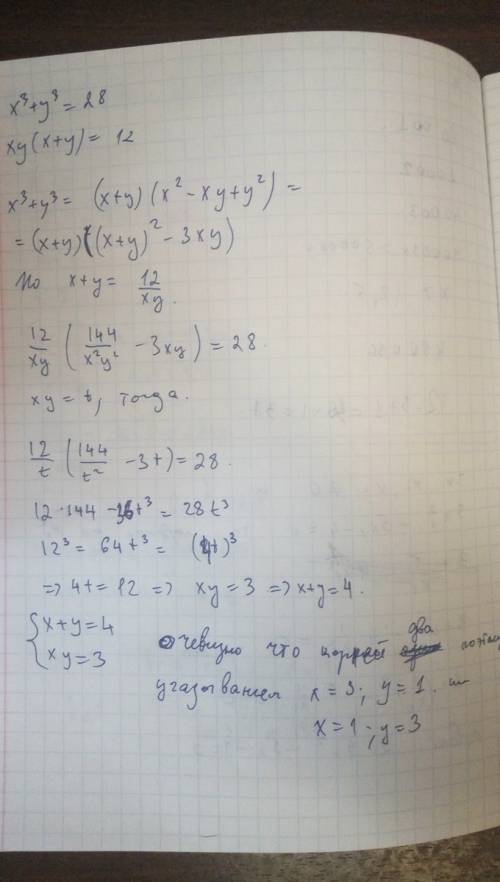 x³+y³ = 28
xy(x+y) = 12
x³+y³ = (x+y)(x² - xy+y²) =
= (x+y)((x+y)² - 3xy)
Но x+y = 12/xy.
12/xy (144/x²y² - 3xy) = 28.
xy = t, тогда.
12/t (144/t² - 3t) = 28.
12·144 - 36t³ = 28t³
12³ = 64t³ = (4t)³
=> 4t = 12 => xy = 3 => x+y = 4.
{x+y=4
xy=3
Очевидно что корней два поэтому
угадываем x = 3; y = 1. или
x = 1; y = 3